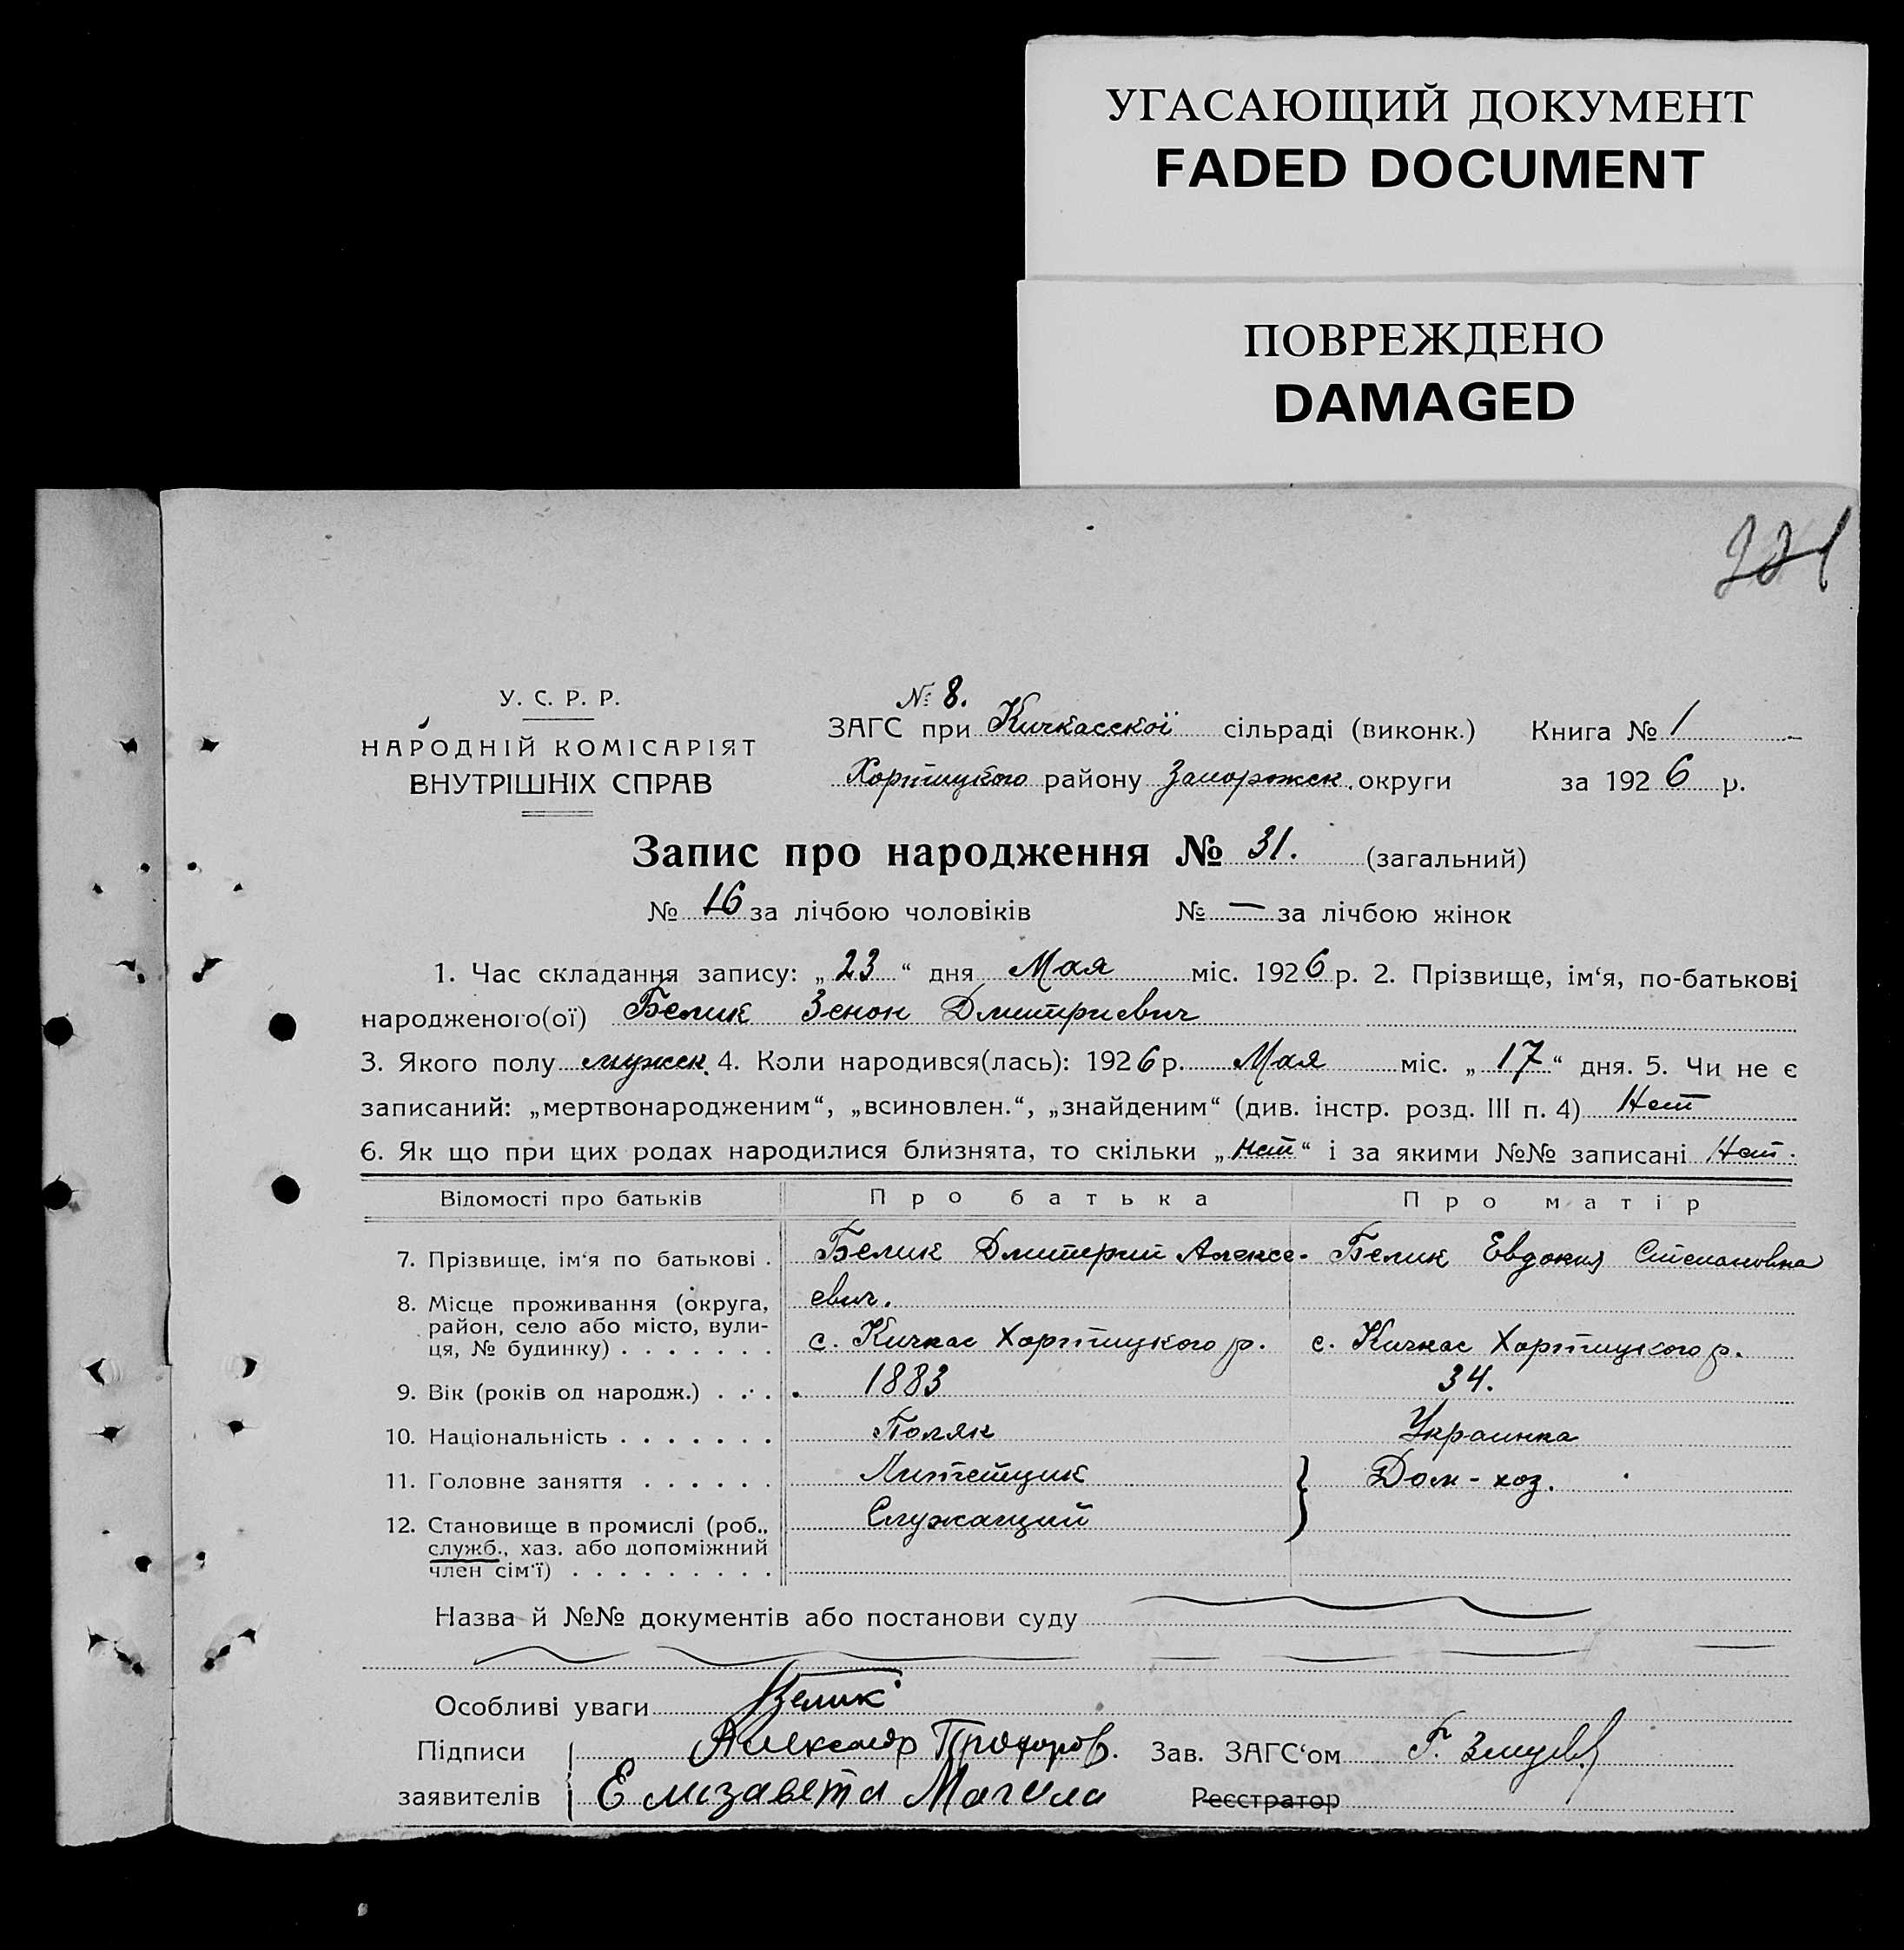 УГАСАЮЩИЙ ДОКУМЕНТ
FADED DOCUMENT
ПОВРЕЖДЕНО
DAMAGED
У. С. Р. Р.
НАРОДНІЙ КОМІСАРІЯТ
ВНУТРІШНІХ СПРАВ
№ 8.
ЗАГС при Кичкасской сільраді (виконк.) Книга № 1
Хортицкого району Запорожск. округи за 1926 р.
Запис про народження № 31. (загальний)
№ 16 за лічбою чоловіків № — за лічбою жінок
1. Час складання запису: „23“ дня Мая міс. 1926 р. 2. Прізвище, ім‘я, по-батькові
народженого(ої) Белик Зенон Дмитриевич
3. Якого полу мужск. 4. Коли народився(лась): 1926 р. Мая міс. „17“ дня. 5. Чи не є
записаний: „мертвонародженим“, „всиновлен.“, „знайденим“ (див. інстр. розд. III п. 4) Нет
6. Як що при цих родах народилися близнята, то скільки „нет“ і за якими №№ записані Нет.
Відомості про батьків Про батька Про матір
7. Прізвище, ім‘я по батькові . Белик Дмитрий Алексе- Белик Евдокия Степановна
евич.
8. Місце проживання (округа,
район, село або місто, вули-
ця, № будинку) . . . . . . . с. Кичкас Хортицкого р. с. Кичкас Хортицкого р.
9. Вік (років од народж.) . . . . 1883 34.
10. Національність . . . . . . . Поляк Украинка
11. Головне заняття . . . . . . Дом-хоз.
12. Становище в промислі (роб., Служащий
служб., хаз. або допоміжний
член сім‘ї) . . . . . . . . .
Назва й №№ документів або постанови суду
Особливі уваги Белик
Підписи Александр Зав. ЗАГС‘ом
заявителів Елизавета Могила Реєстратор